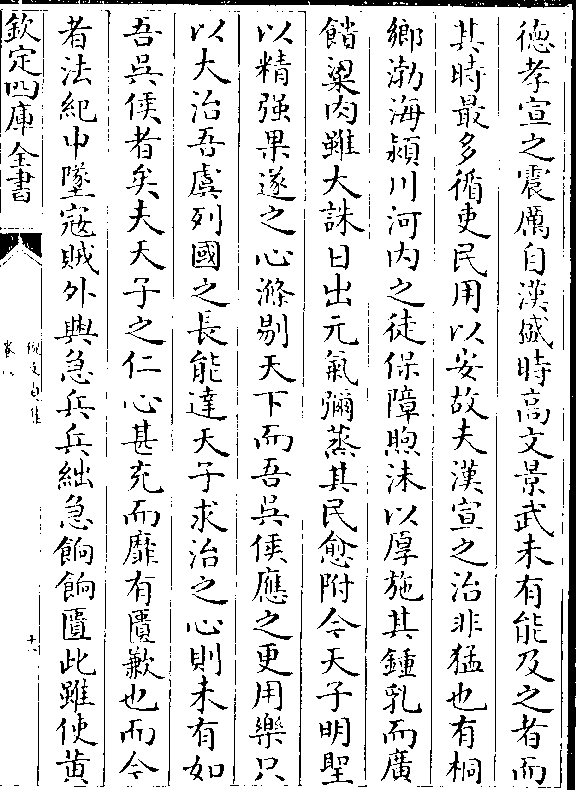 徳孝宣之震厲自漢盛時高文景武未有能及之者而
其時最多循吏民用以安故夫漢宣之治非猛也有桐
鄉渤海潁川河内之徒保障煦沫以厚施其鍾乳而廣
餔粱肉雖大誅日出元氣彌蒸其民愈附今天子明聖
以精强果遂之心滌剔天下而吾吳侯應之更用樂只
以大治吾虞列國之長能達天子求治之心則未有如
吾吳侯者矣夫天子之仁心甚充而靡有匱歉也而今
者法紀中墜寇賊外興急兵兵絀急餉餉匱此雖使黄
欽定四庫全書
卷八